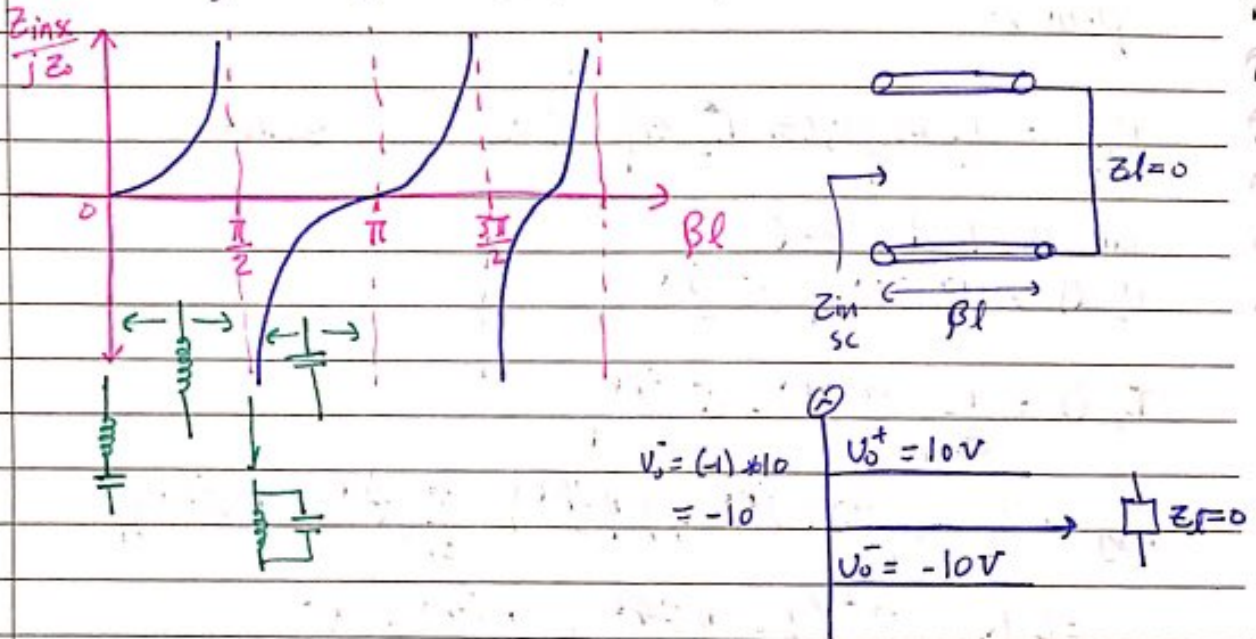 Zinsc
jZ₀
0
π
2
π
3π
2
βl
Zl=0
Zin
sc
βl
V₀⁻ = (-1) * 10
= -10
V₀⁺ = 10V
V₀⁻ = -10V
Zl=0